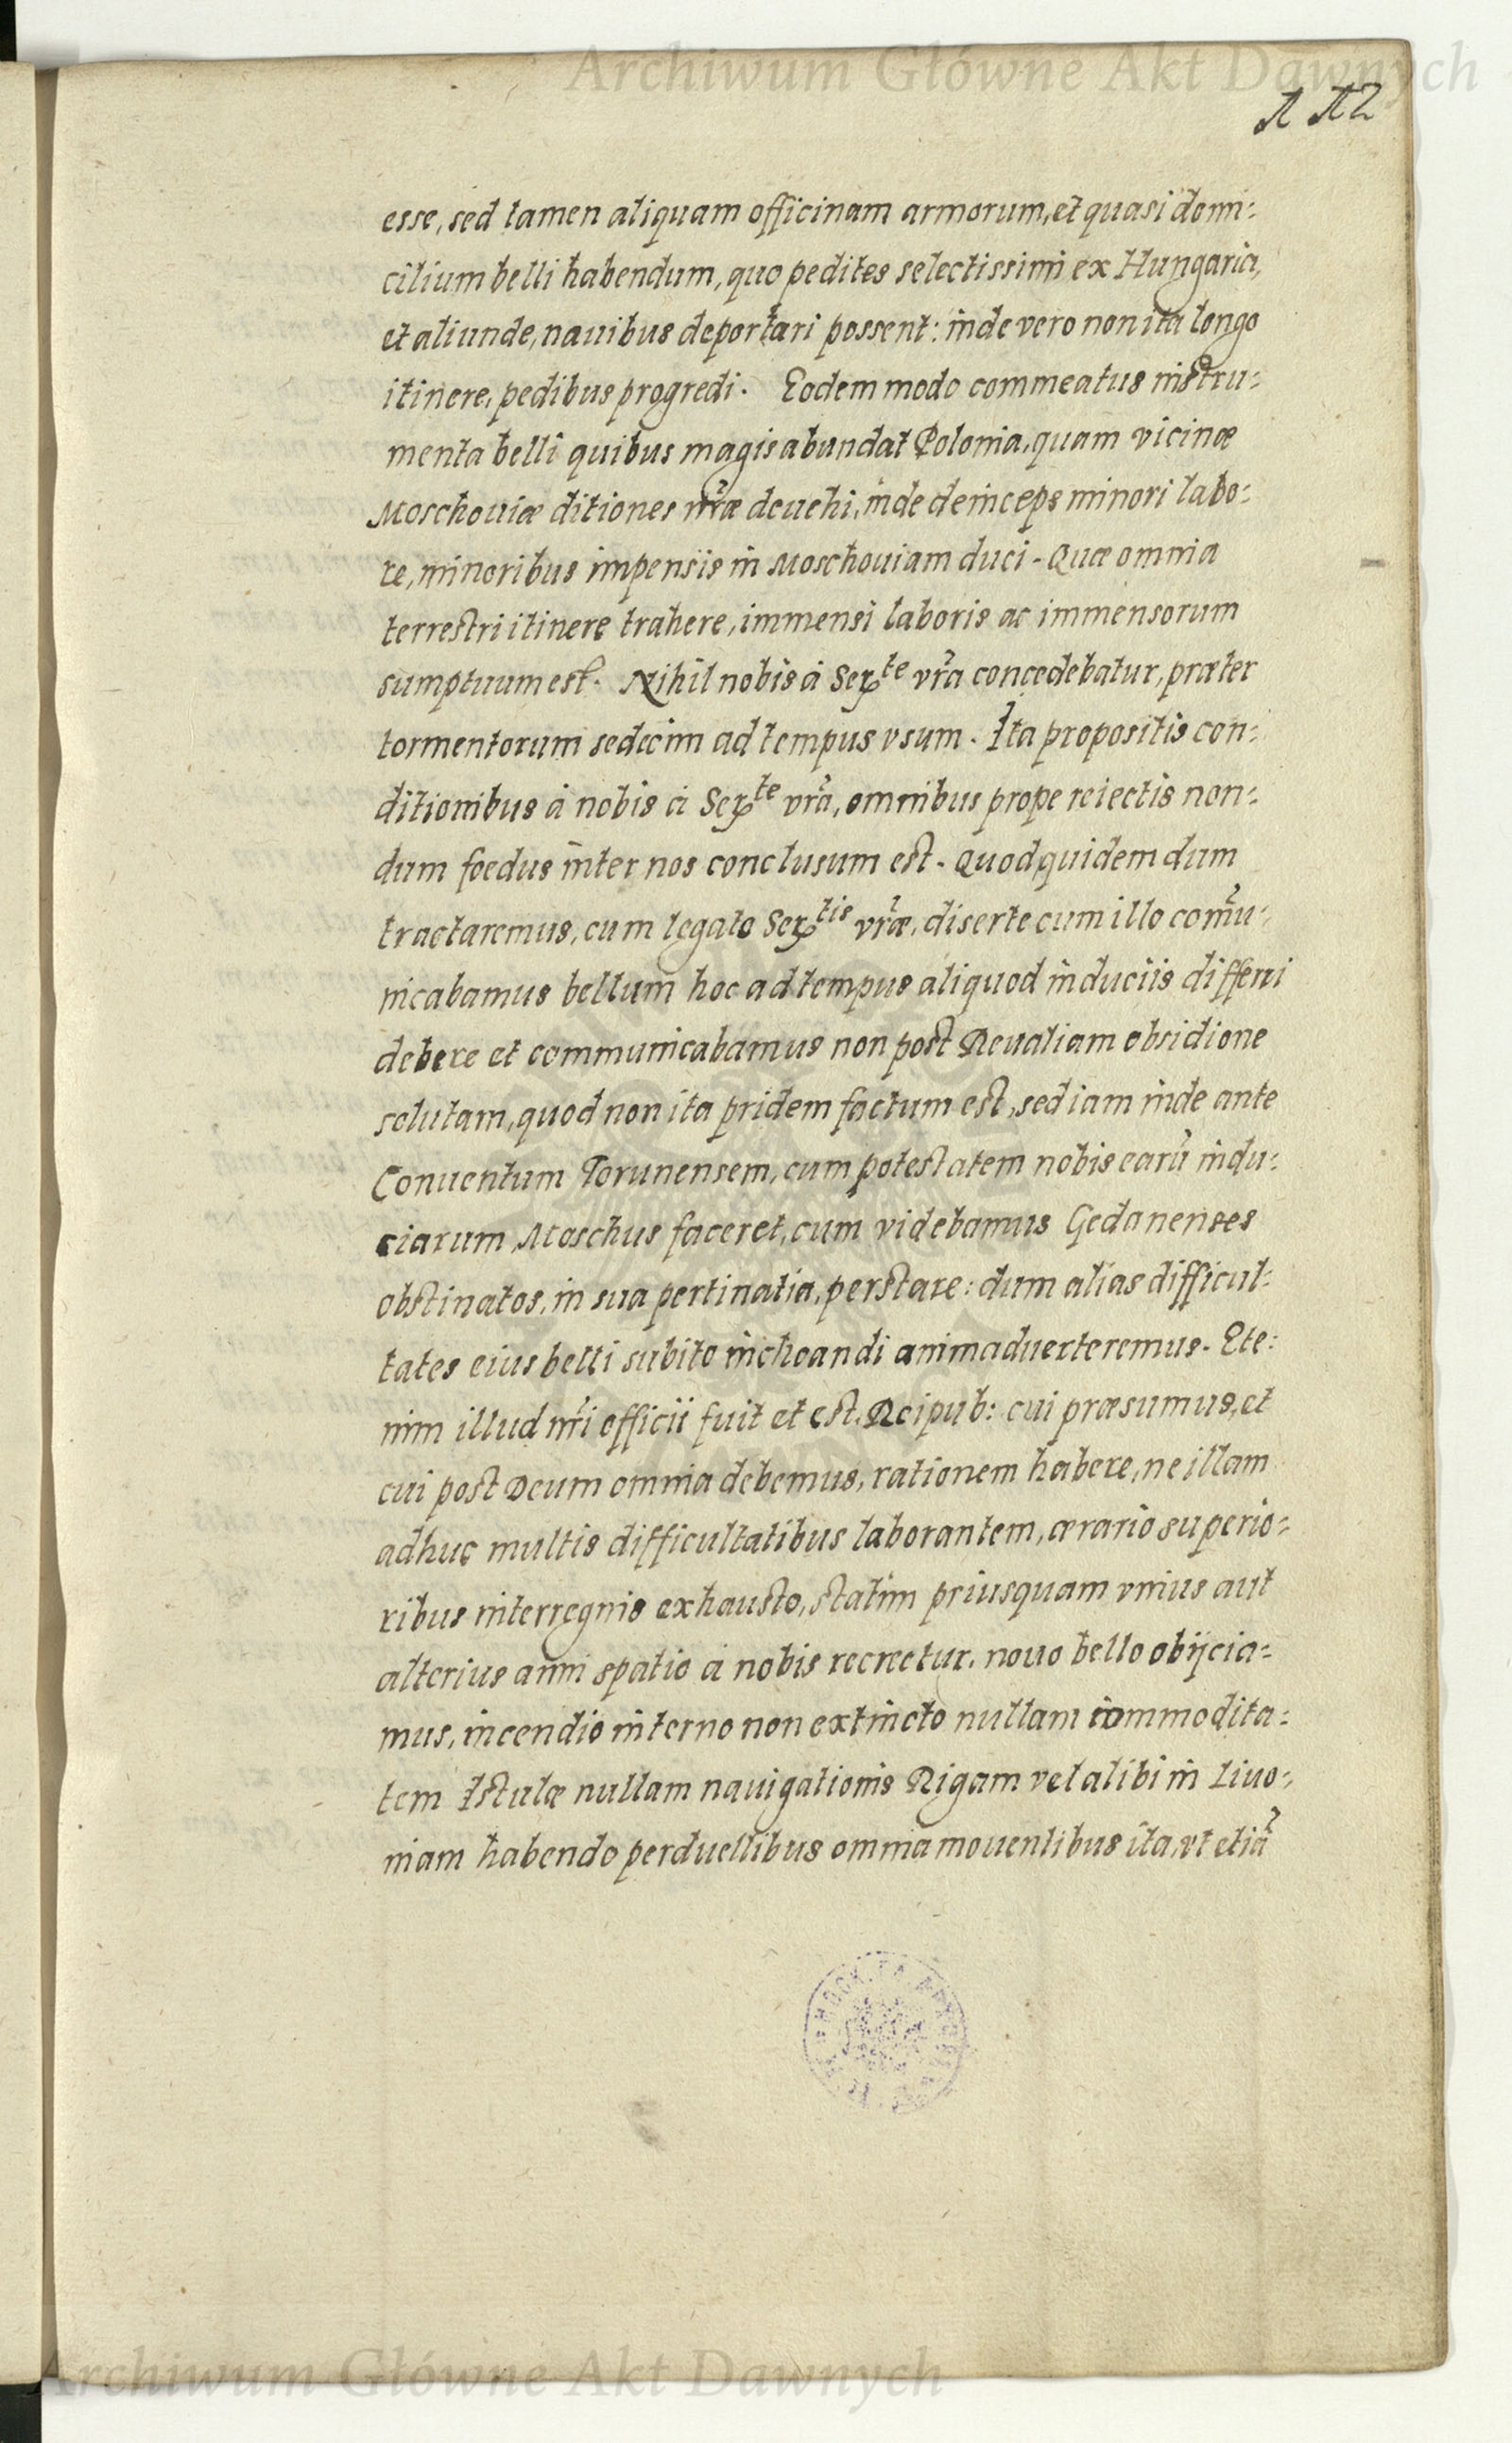 Archiwum Główne Akt Dawnych
112
esse, sed tamen aliquam officinam armorum, et quasi domi-
cilium belli habendum, quo pedites selectissimi ex Hungaria,
et aliunde, nauibus deportari possent: inde vero non ita longo
itinere, pedibus progredi. Eodem modo commeatus instru-
menta belli quibus magis abundat Polonia, quam vicinæ
Moschouiæ ditiones nr̃æ deuehi, inde deinceps minori labo-
re, minoribus impensis in Moschouiam duci. Quæ omnia
terrestri itinere trahere, immensi laboris ac immensorum
sumptuum est. Nihil nobis à Serte vr̃a concedebatur, præter
tormentorum sedecim ad tempus vsum. Ita propositis con-
ditionibus à nobis à Serte vr̃a, omnibus prope reiectis non-
dum foedus inter nos conclusum est. Quod quidem dum
tractaremus, cum legato Sertis vr̃æ, diserte cum illo com̃u-
nicabamus bellum hoc ad tempus aliquod induciis differri
debere et communicabamus non post Reualiam obsidione
solutam, quod non ita pridem factum est, sed iam inde ante
Conuentum Torunensem, cum potestatem nobis earũ indu-
ciarum Moschus faceret, cum videbamus Gedanenses
obstinatos, in sua pertinatia, perstare: dum alias difficul-
tates eius belli subito inchoandi animaduerteremus. Ete-
nim illud nr̃i officii fuit et est, Reipub: cui præsumus, et
cui post Deum omnia debemus, rationem habere, ne illam
adhuc multis difficultatibus laborantem, ærario superio-
ribus interregnis exhausto, statim priusquam vnius aut
alterius anni spatio à nobis recreetur, nouo bello obijcia-
mus, incendio interno non extincto nullam commodita-
tem Istulæ nullam nauigationis Rigam vel alibi in Liuo-
niam habendo perduellibus omnia mouentibus ita, vt etiã
Archiwum Główne Akt Dawnych